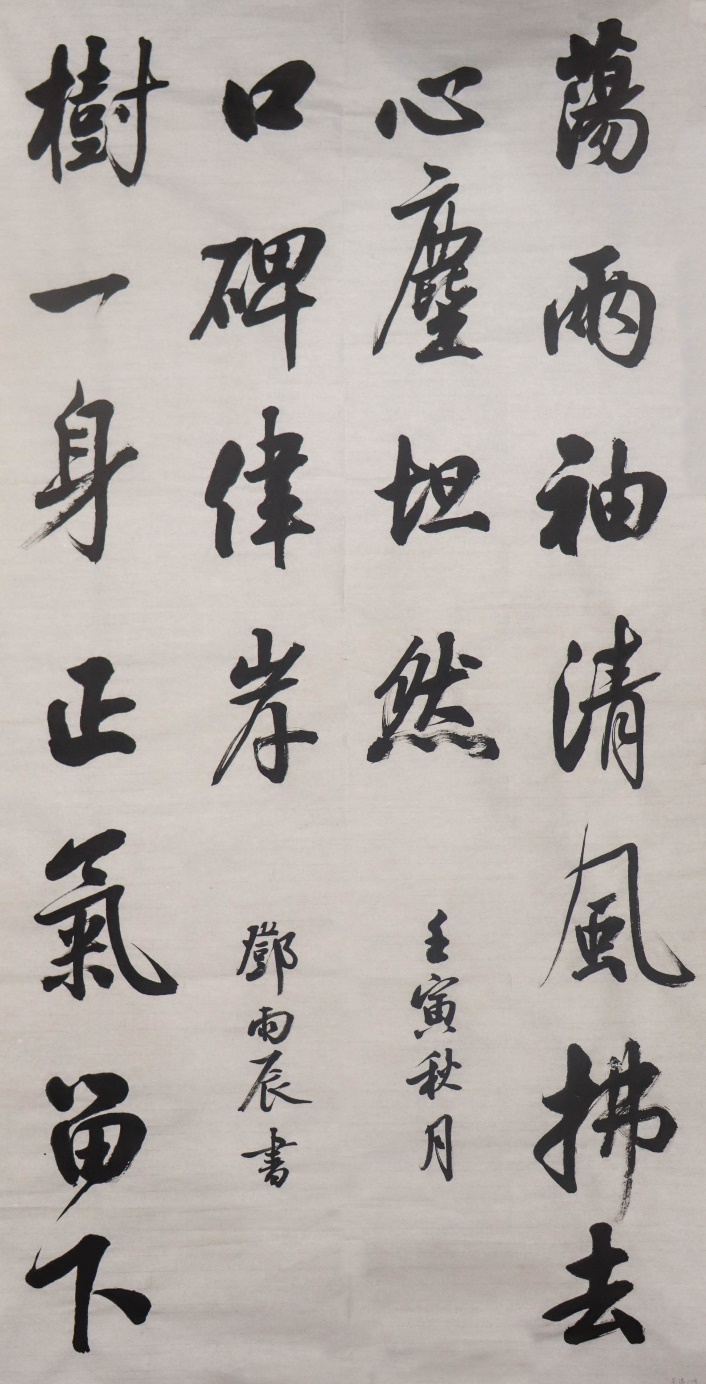 蕩兩袖清風拂去
心塵坦然
樹一身正氣留下
口碑偉岸
壬寅秋月
鄧雨辰書